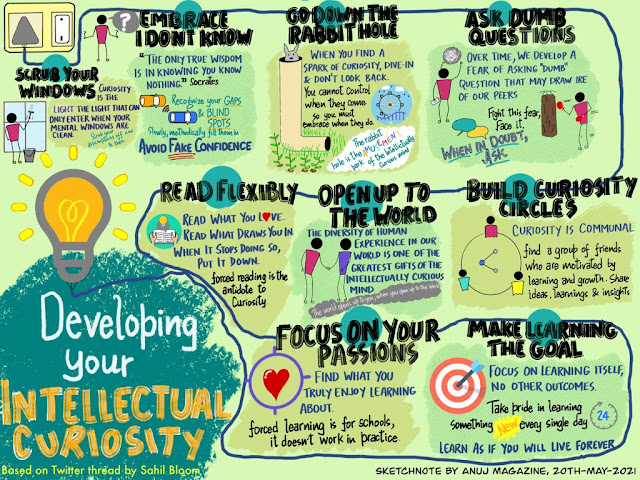 EMBRACE
I DONT KNOW
"THE ONLY TRUE WISDOM
IS IN KNOWING YOU KNOW
NOTHING." Socrates
Recognize your GAPS
& BLIND
SPOTS
Slowly, methodically fill them in
AVOID FAKE CONFIDENCE
GO DOWN THE
RABBIT HOLE
WHEN YOU FIND A
SPARK OF CURIOSITY, DIVE-IN
& DON'T LOOK BACK.
You cannot control
when they come
so you must
embrace when they do.
The rabbit
hole is the AMUSEMENT
park of the intellectually
curious mind
ASK DUMB
QUESTIONS
OVER TIME, WE DEVELOP A
FEAR OF ASKING "DUMB"
QUESTION THAT MAY DRAW IRE
OF OUR PEERS
Fight this fear,
Face it.
WHEN IN DOUBT,
ASK
SCRUB YOUR
WINDOWS
CURIOSITY IS THE
LIGHT THE LIGHT THAT CAN
ONLY ENTER WHEN YOUR
MENTAL WINDOWS ARE
CLEAN.
READ FLEXIBLY
READ WHAT YOU LOVE.
READ WHAT DRAWS YOU IN
WHEN IT STOPS DOING SO,
PUT IT DOWN.
forced reading is the
antidote to
Curiosity.
OPEN UP TO
THE WORLD
THE DIVERSITY OF HUMAN
EXPERIENCE IN OUR
WORLD IS ONE OF THE
GREATEST GIFTS OF THE
INTELLECTUALLY CURIOUS
MIND
The world opens up to you, when you open up to the world
BUILD CURIOSITY
CIRCLES
CURIOSITY IS COMMUNAL
find a group of friends
who are motivated by
learning and growth. Share
ideas, learnings & insights
Developing
your
INTELLECTUAL
CURIOSITY
Based on Twitter thread by Sahil Bloom
FOCUS ON YOUR
PASSIONS
FIND WHAT YOU
TRULY ENJOY LEARNING
ABOUT.
forced learning is for schools,
it doesn't work in practice.
MAKE LEARNING
THE GOAL
FOCUS ON LEARNING ITSELF,
NO OTHER OUTCOMES.
Take pride in learning
something NEW every single day
24
LEARN AS IF YOU WILL LIVE FOREVER
SKETCHNOTE BY ANUJ MAGAZINE, 20TH-MAY-2021